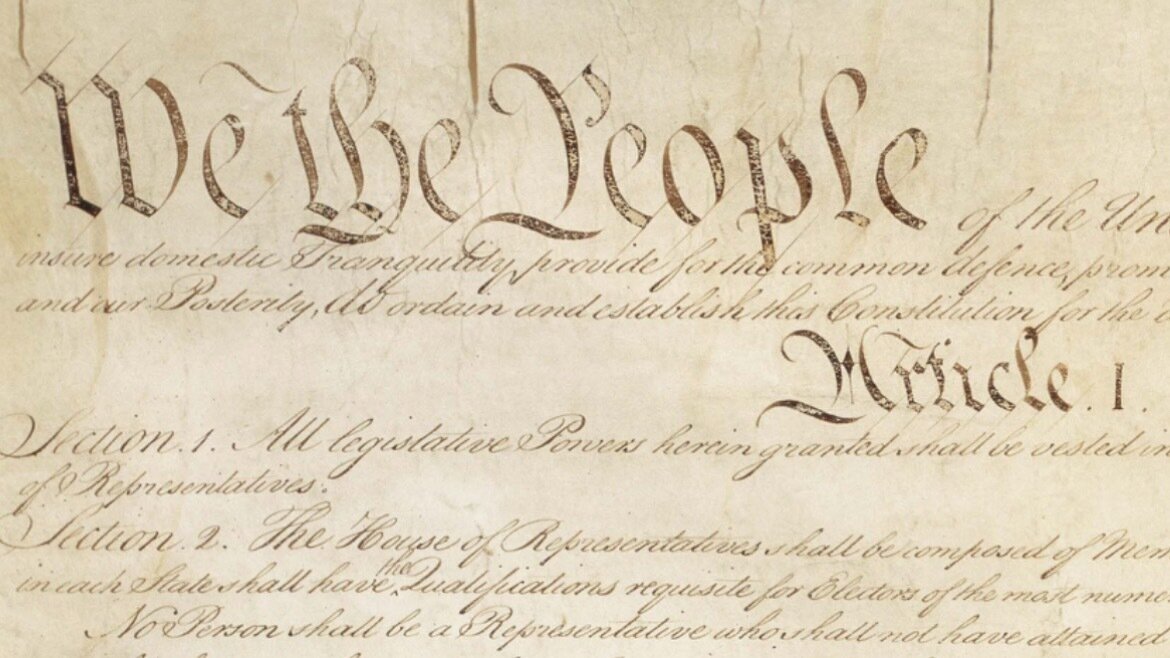 We the People of the Un
insure domestic Tranquility, provide for the common defence, prom
and our Posterity, do ordain and establish this Constitution for the
Article. I.
Section. 1. All legislative Powers herein granted shall be vested in
of Representatives.
Section. 2. The House of Representatives shall be composed of Mem
in each State shall have the Qualifications requisite for Electors of the most nume
No Person shall be a Representative who shall not have attained